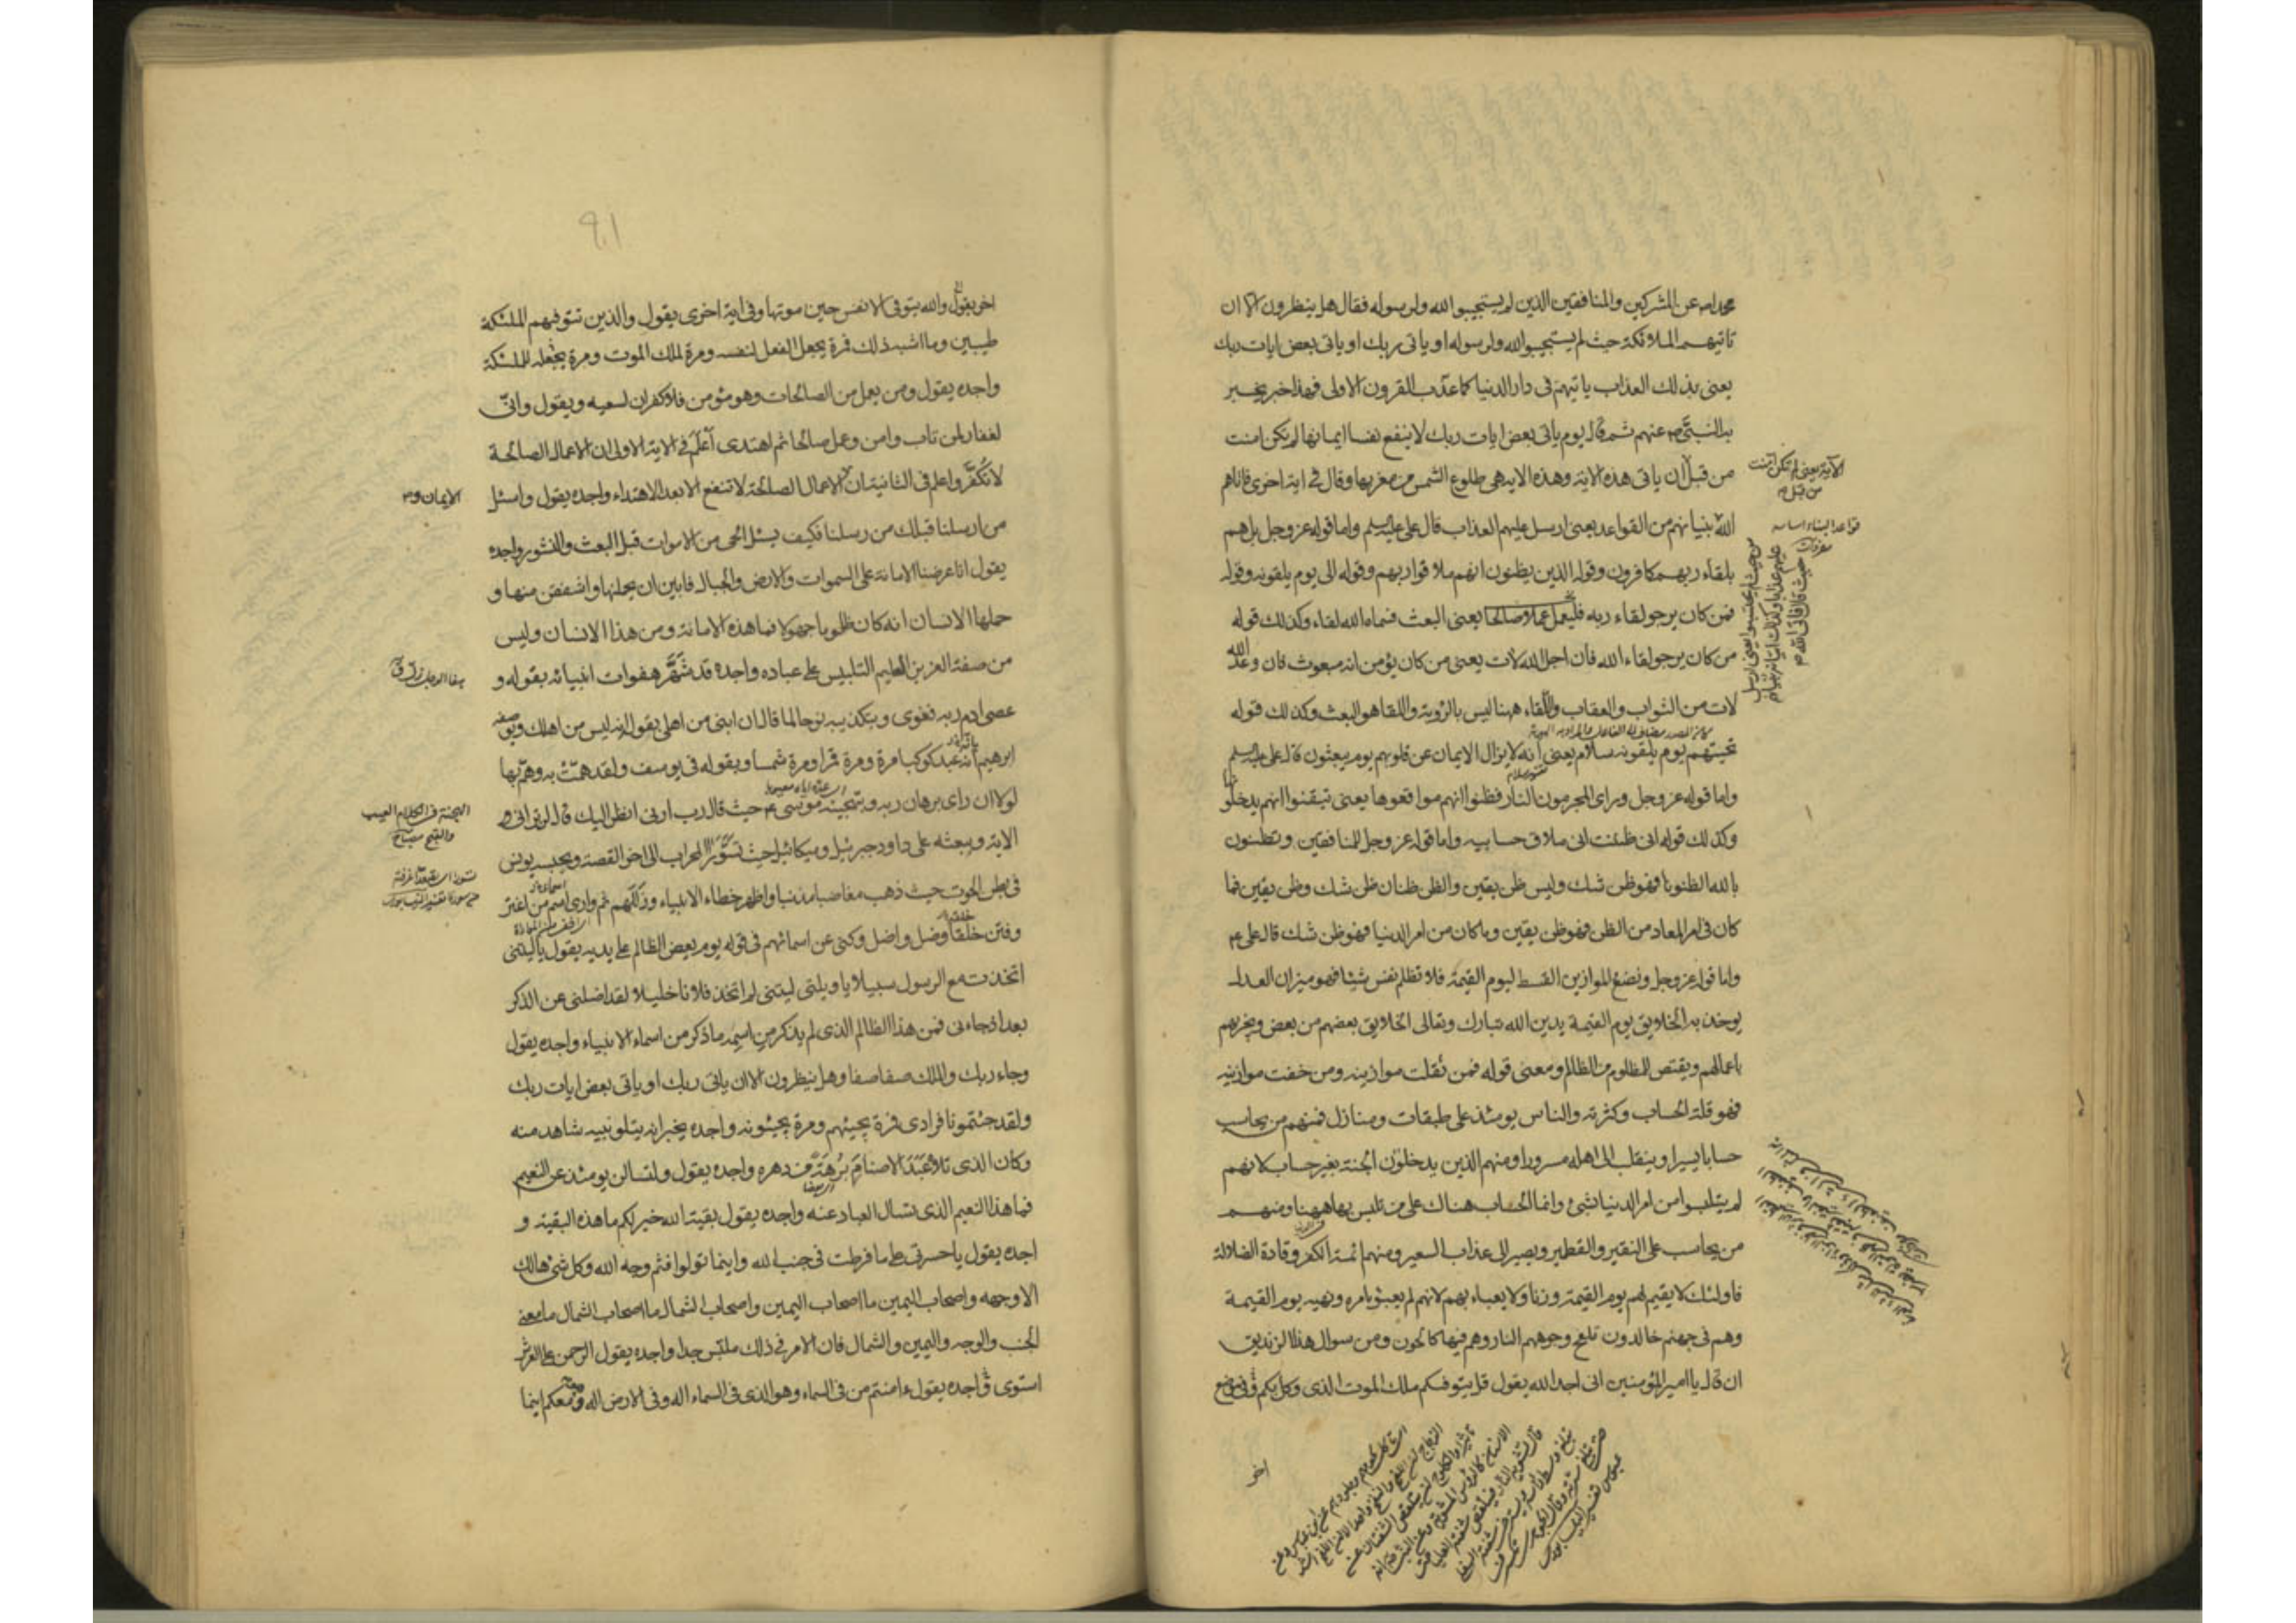 محمدا ص عن المشركين والمنافقين الذين لم يستجيبوا الله ولرسوله فقال هل ينظرون الا ان
تاتيهم الملائكة حيث لم يستجيبوا الله ولرسوله او ياتى ربك او ياتى بعض ايات ربك
يعنى بذلك العذاب ياتيهم فى دار الدنيا كما عذب القرون الاولى فهذا خبر يخبر
به النبى ص عنهم ثم قال يوم ياتى بعض ايات ربك لا ينفع نفسا ايمانها لم تكن امنت
من قبل ان ياتى هذه الاية وهذه الاية هى طلوع الشمس من مغربها وقال فى اية اخرى فاتاهم
الله بنيانهم من القواعد يعنى ارسل عليهم العذاب قال على عليه السلم واما قوله عز وجل بل هم
بلقاء ربهم كافرون وقوله الذين يظنون انهم ملاقوا ربهم وقوله الى يوم يلقونه وقوله
فمن كان يرجو لقاء ربه فليعمل عملا صالحا يعنى البعث فسماه الله لقاء وكذلك قوله
من كان يرجو لقاء الله فان اجل الله لات يعنى من كان يؤمن انه مبعوث فان وعد الله
لات من الثواب والعقاب واللقاء ههنا ليس بالرؤية واللقا هو البعث وكذلك قوله
تحيتهم يوم يلقونه سلام يعنى انه لا يزال الايمان عن قلوبهم يوم يبعثون قال على عليه السلم
واما قوله عز وجل وراى المجرمون النار فظنوا انهم مواقعوها يعنى تيقنوا انهم يدخلونها
وكذلك قوله انى ظننت انى ملاق حسابيه واما قوله عز وجل للمنافقين وتظنون
بالله الظنونا فهو ظن شك وليس ظن يقين والظن ظنان ظن شك وظن يقين فما
كان فى امر المعاد من الظن فهو ظن يقين وما كان من امر الدنيا فهو ظن شك قال على ع
واما قوله عز وجل ونضع الموازين القسط ليوم القيمة فلا تظلم نفس شيئا فهو ميزان العدل
يوخذ به الخلايق يوم القيمة يدين الله تبارك وتعالى الخلايق بعضهم من بعض ويجزيهم
باعمالهم ويقتص للمظلوم من الظالم ومعنى قوله فمن ثقلت موازينه ومن خفت موازينه
فهو قلة الحساب وكثرته والناس يومئذ على طبقات ومنازل فمنهم من يحاسب
حسابا يسيرا وينقلب الى اهله مسرورا ومنهم الذين يدخلون الجنة بغير حساب لانهم
لم يتلبسوا من امر الدنيا بشئ وانما الحساب هناك على من تلبس بها ههنا ومنهم
من يحاسب على النقير والقطمير ويصير الى عذاب السعير ومنهم ائمة الكفر وقادة الضلالة
فاولئك لا يقيم لهم يوم القيمة وزنا ولا يعباء بهم لانهم لم يعبئو بامره ونهيه يوم القيمة
وهم فى جهنم خالدون تلفح وجوههم النار وهم فيها كالحون ومن سوال هذا الزنديق
ان قال يا امير المؤمنين انى اجد الله يقول قل يتوفيكم ملك الموت الذى وكل بكم وفى موضع
اخر
الآية يعنى لم تكن آمنت
من قبل
قواعد البناء اساسه
٩١
اخر يقول والله يتوفى الانفس حين موتها وفى اية اخرى يقول والذين تتوفيهم الملئكة
طيبين وما اشبه ذلك فمرة يجعل الفعل لنفسه ومرة لملك الموت ومرة يجعله للملئكة
واجده يقول ومن يعمل من الصالحات وهو مؤمن فلا كفران لسعيه ويقول وانى
لغفار لمن تاب وامن وعمل صالحا ثم اهتدى اعلم فى الاية الاولى ان الاعمال الصالحة
لا تكفر واعلم فى الثانية ان الاعمال الصالحة لا تنفع الا بعد الاهتداء واجده يقول واسئل
من ارسلنا قبلك من رسلنا فكيف يسئل الحى من الاموات قبل البعث والنشور واجده
يقول انا عرضنا الامانة على السموات والارض والجبال فابين ان يحملنها واشفقن منها و
حملها الانسان انه كان ظلوما جهولا فما هذه الامانة ومن هذا الانسان وليس
من صفة العزيز العليم التلبيس على عباده واجده قد شهر هفوات انبيائه بقوله و
عصى ادم ربه فغوى وبتكذيبه نوحا لما قال ان ابنى من اهلى بقوله انه ليس من اهلك وبوصفه
ابرهيم بانه عبد كوكبا مرة ومرة قمرا ومرة شمسا وبقوله فى يوسف ولقد همت به وهم بها
لولا ان راى برهان ربه وبتهجينه موسى ع حيث قال رب ارنى انظر اليك قال لن ترانى
الاية وببعثه على داود جبرئيل وميكائيل حيث تسوروا المحراب الى اخر القصة وبحبسه يونس
فى بطن الحوت حيث ذهب مغاضبا مذنبا واظهر خطاء الانبياء وزللهم ثم وارى اسم من اغتر
وفتن خلقا وضل واضل وكنى عن اسمائهم فى قوله يوم يعض الظالم على يديه يقول يا ليتنى
اتخذت مع الرسول سبيلا يا ويلتى ليتنى لم اتخذ فلانا خليلا لقد اضلنى عن الذكر
بعد اذ جاءنى فمن هذا الظالم الذى لم يذكر من اسمه ما ذكر من اسماء الانبياء واجده يقول
وجاء ربك والملك صفا صفا وهل ينظرون الا ان ياتى ربك او ياتى بعض ايات ربك
ولقد جئتمونا فرادى فمرة يجيئهم ومرة يجيئونه واجده يخبر انه يتلو نبيه شاهد منه
وكان الذى تلاه عبد الاصنام برهة من دهره واجده يقول ولتسالن يومئذ عن النعيم
فما هذا النعيم الذى تسال العباد عنه واجده يقول بقيت الله خير لكم ما هذه البقية و
اجده يقول يا حسرتى على ما فرطت فى جنب الله واينما تولوا فثم وجه الله وكل شئ هالك
الا وجهه واصحاب اليمين ما اصحاب اليمين واصحاب الشمال ما اصحاب الشمال ما معنى
الجنب والوجه واليمين والشمال فان الامر فى ذلك ملتبس جدا واجده يقول الرحمن على العرش
استوى واجده يقول ءامنتم من فى السماء وهو الذى فى السماء اله وفى الارض اله وهو معكم اينما
الايمان و
الهجنة فى الكلام العيب
والقبح مصباح